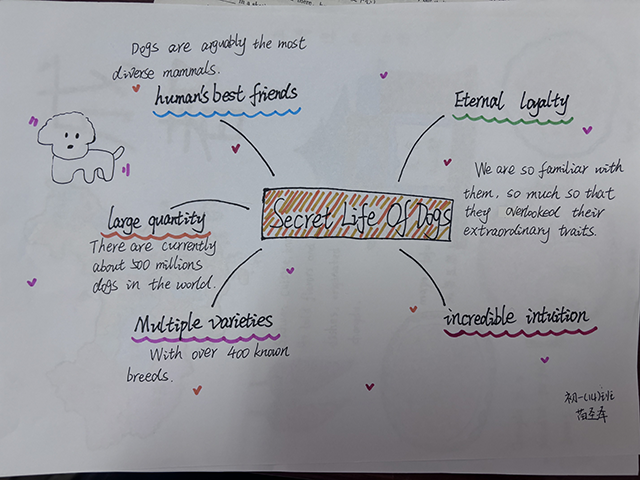 Dogs are arguably the most
diverse mammals.
human's best friends
Eternal loyalty
We are so familiar with
them, so much so that
they overlooked their
extraordinary traits.
Secret Life Of Dogs
large quantity
There are currently
about 500 millions
dogs in the world.
Multiple varieties
With over 400 known
breeds.
incredible intuition
初一(14)班